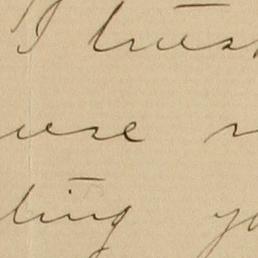 I trus
use
ting yo